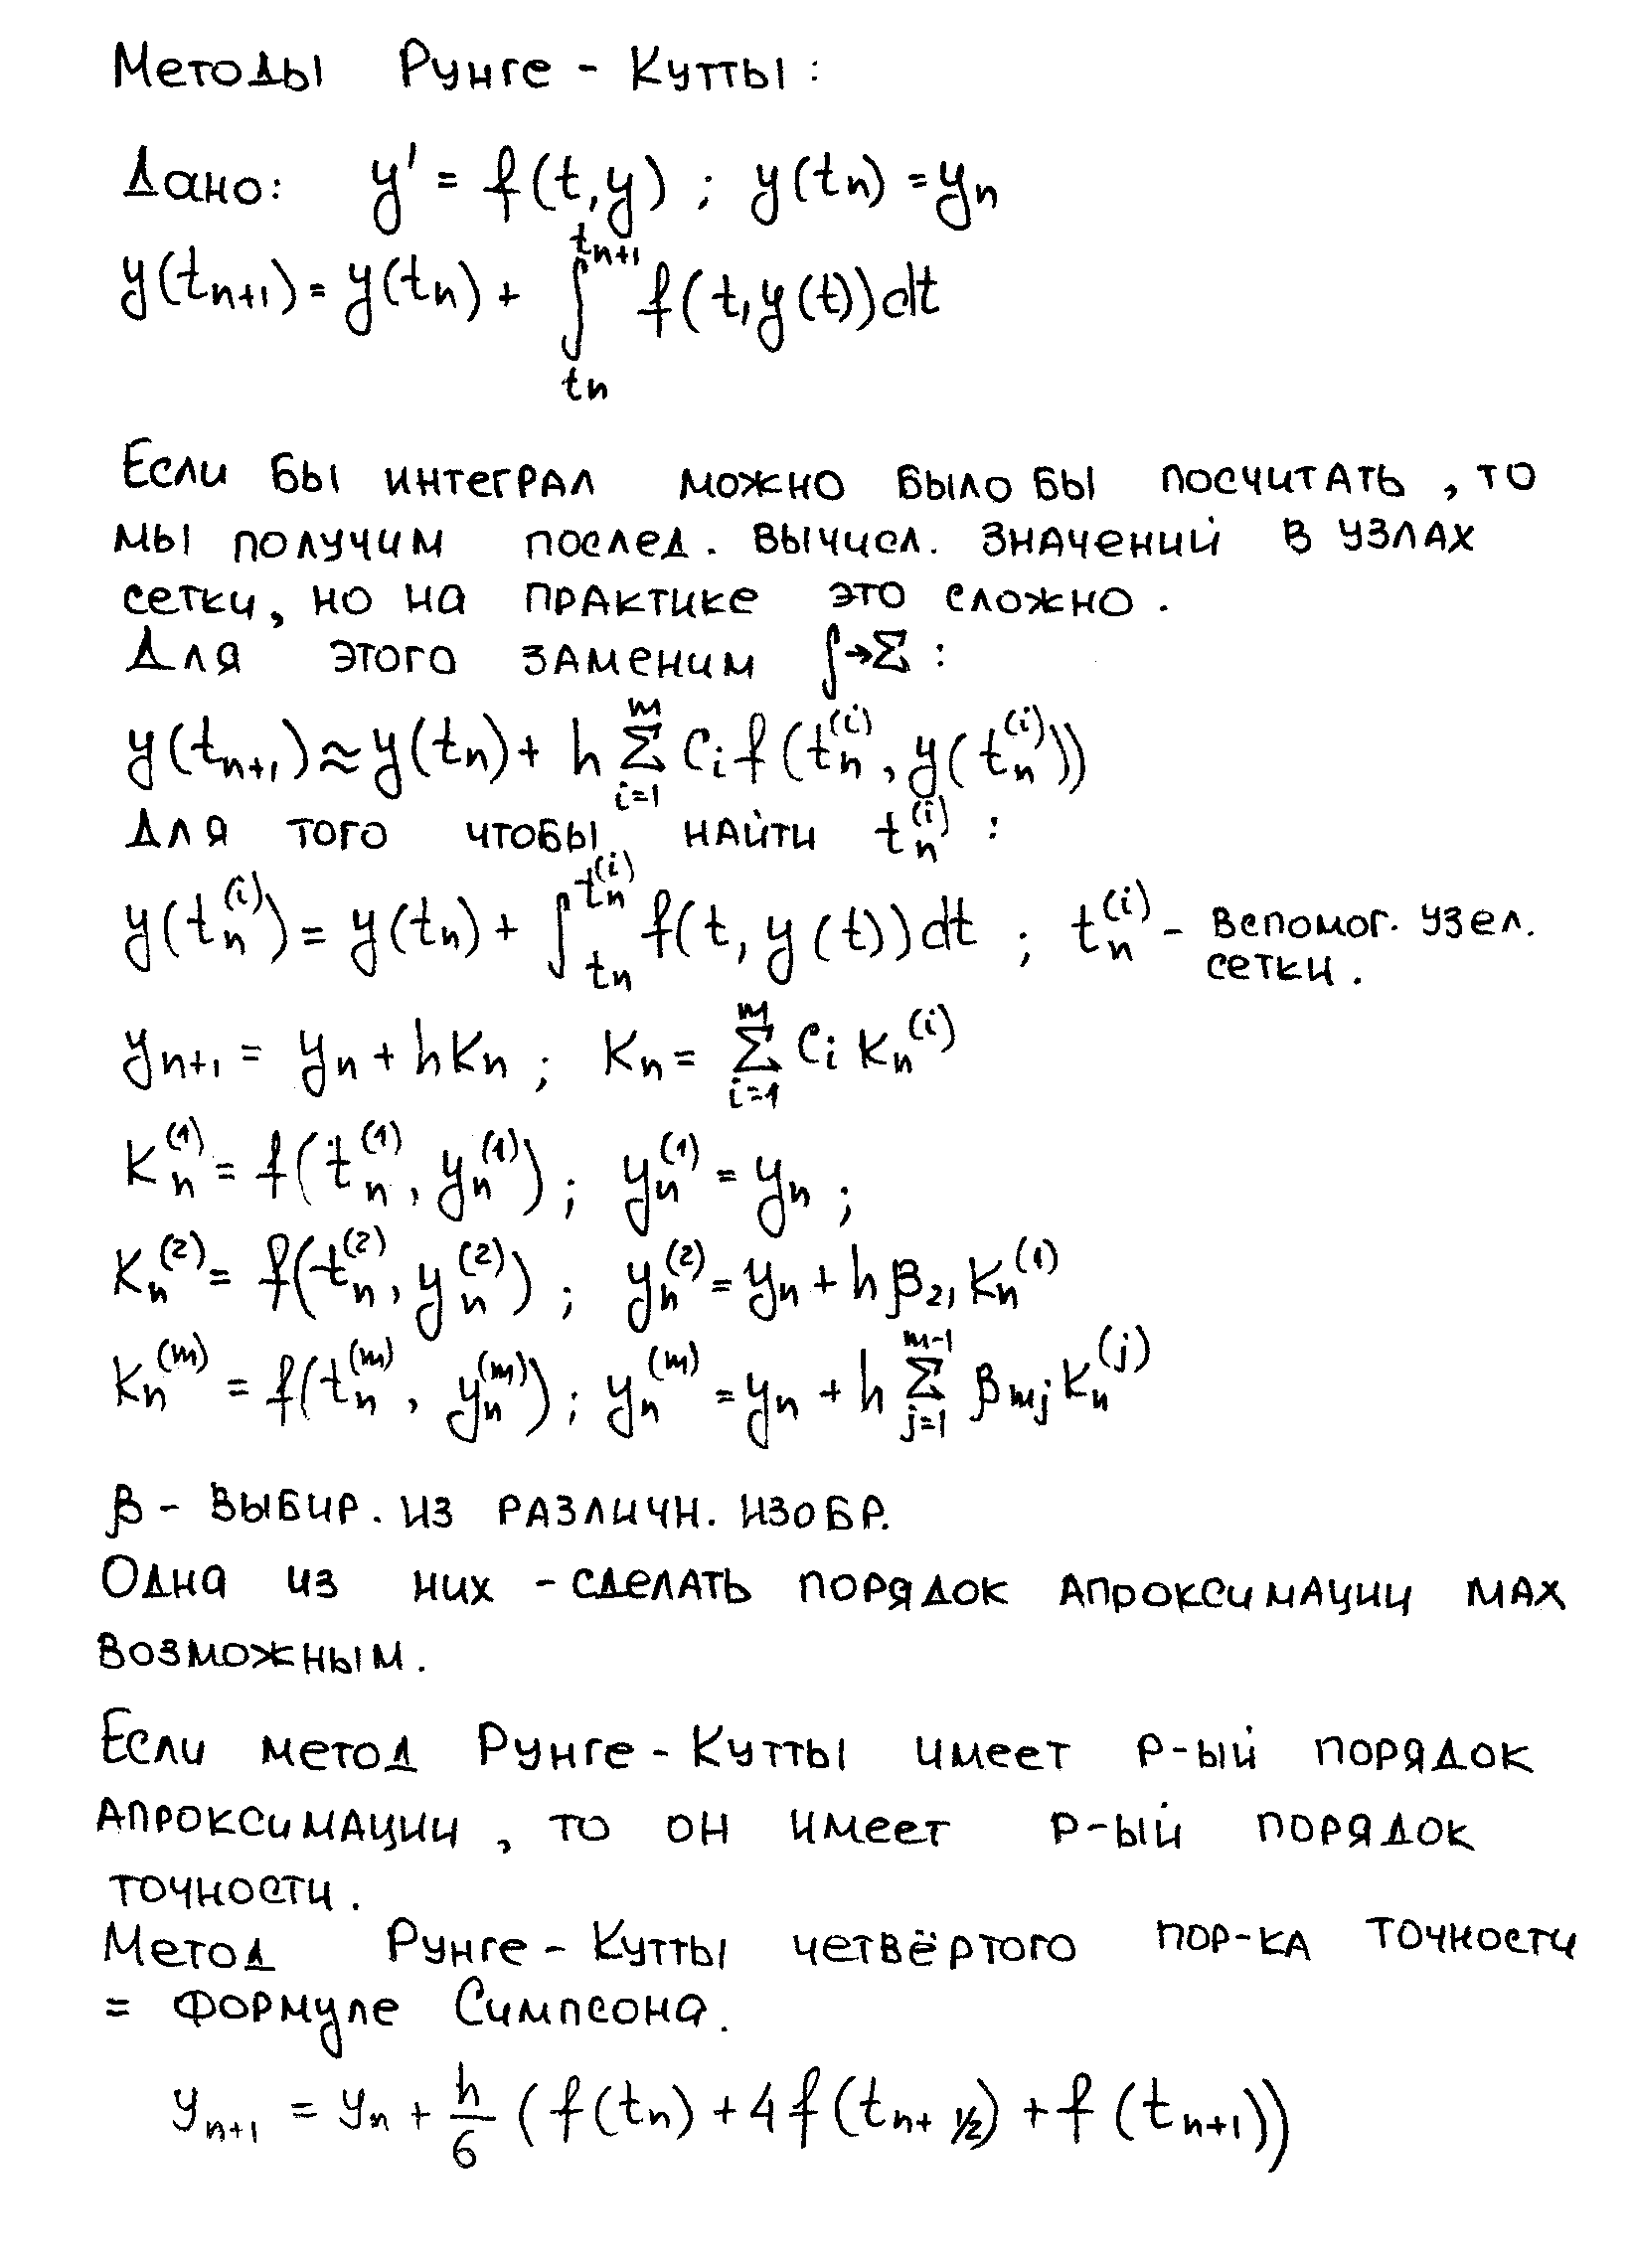 Методы Рунге - Кутты:
Дано: y' = f(t,y) ; y(tₙ) = yₙ
y(tₙ₊₁) = y(tₙ) + ∫_{tₙ}^{tₙ₊₁} f(t,y(t))dt
Если бы интеграл можно было бы посчитать, то
мы получим послед. вычисл. значений в узлах
сетки, но на практике это сложно.
Для этого заменим ∫→Σ :
y(tₙ₊₁) ≈ y(tₙ) + h Σ_{i=1}^{m} Cᵢ f(tₙ^{(i)}, y(tₙ^{(i)}))
Для того чтобы найти tₙ^{(i)} :
y(tₙ^{(i)}) = y(tₙ) + ∫_{tₙ}^{tₙ^{(i)}} f(t, y(t))dt ; tₙ^{(i)} - вспомог. узел.
сетки.
yₙ₊₁ = yₙ + hKₙ ; Kₙ = Σ_{i=1}^{m} Cᵢ Kₙ^{(i)}
Kₙ^{(1)} = f(tₙ^{(1)}, yₙ^{(1)}) ; yₙ^{(1)} = yₙ ;
Kₙ^{(2)} = f(tₙ^{(2)}, yₙ^{(2)}) ; yₙ^{(2)} = yₙ + hβ₂₁Kₙ^{(1)}
Kₙ^{(m)} = f(tₙ^{(m)}, yₙ^{(m)}) ; yₙ^{(m)} = yₙ + h Σ_{j=1}^{m-1} β_{mj}Kₙ^{(j)}
β - выбир. из различн. изобр.
Одна из них - сделать порядок апроксимации мах
возможным.
Если метод Рунге - Кутты имеет р-ый порядок
апроксимации, то он имеет р-ый порядок
точности.
Метод Рунге - Кутты четвёртого пор-ка точности
= формуле Симпсона.
yₙ₊₁ = yₙ + h/6 (f(tₙ) + 4f(t_{n+1/2}) + f(tₙ₊₁))